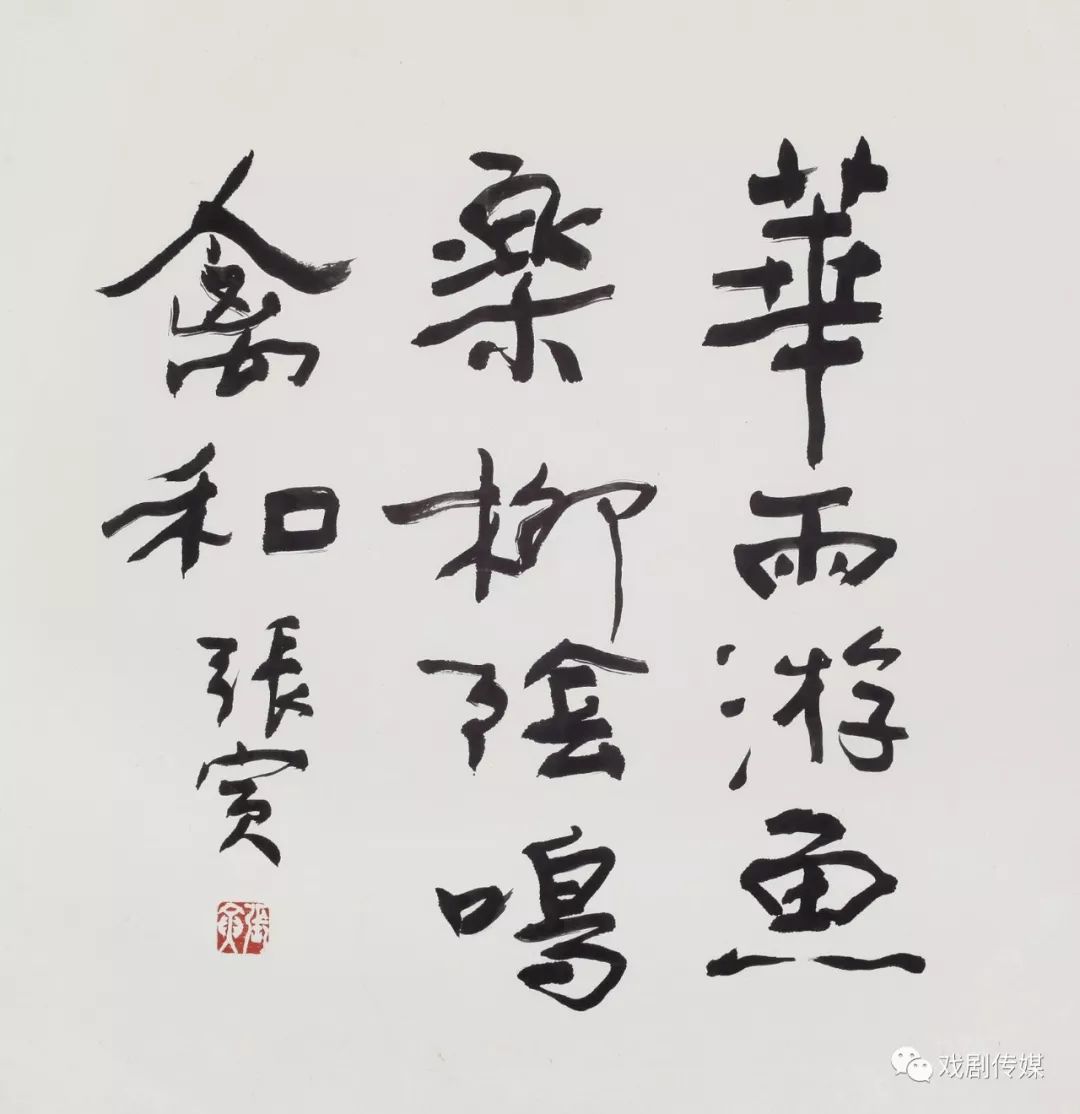 華雨游魚
楽柳陰鳴
禽和
張寅
張寅
戏剧传媒